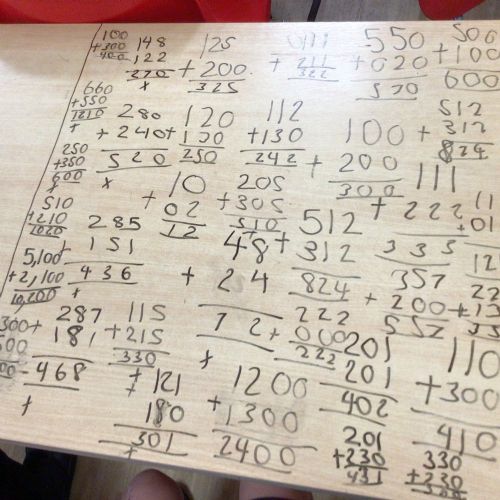 100
+300
400
148
122
270
125
+200
325
+211
322
550
+020
570
500
+100
600
660
+550
1210
280
+240
520
120
130
250
112
+130
242
100
+200
300
512
+312
824
250
+350
600
10
+02
12
205
+305
510
111
+222
333
11
+01
12
510
+210
285
151
436
48
+24
72
512
+312
824
357
+200
557
5,100
+2,100
287
181
468
115
+215
330
222
+000
222
201
201
402
110
+300
410
+121
180
301
1200
+1300
2400
201
+230
431
330
+230